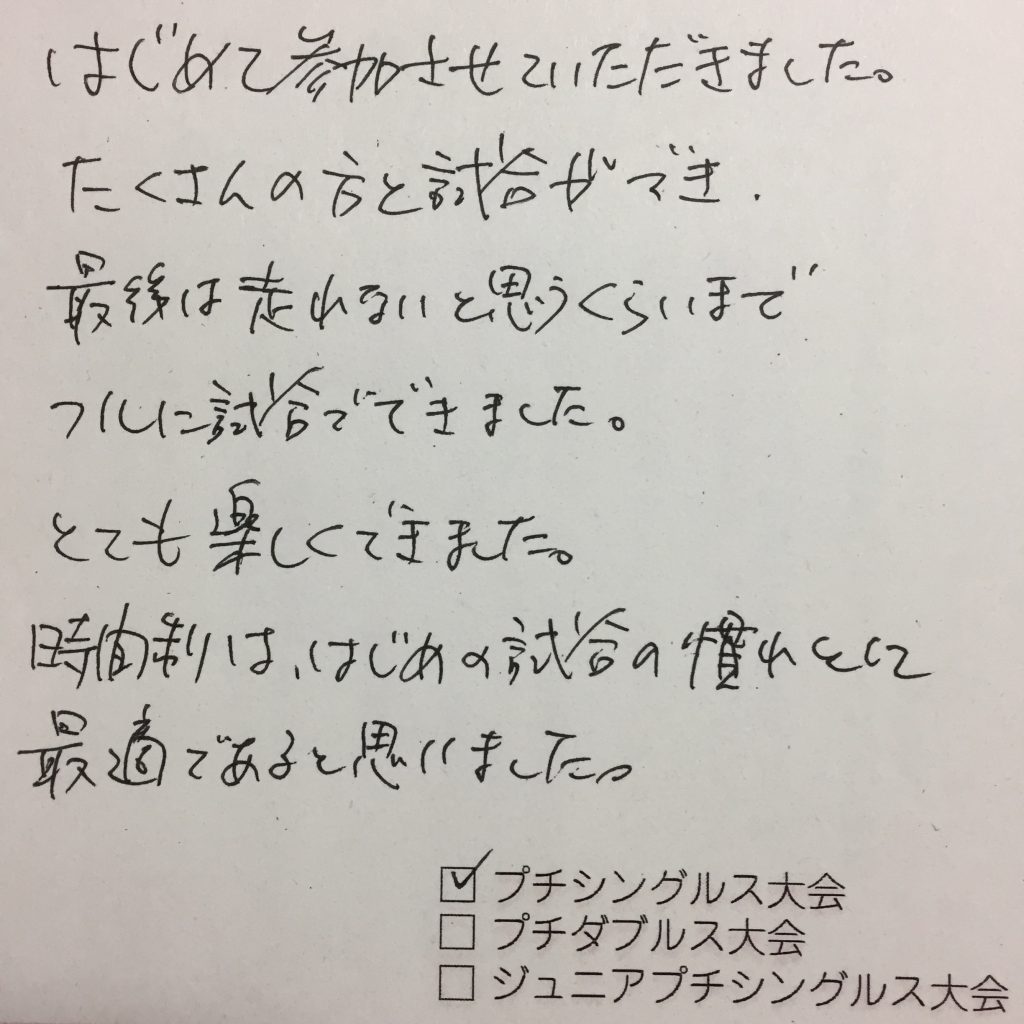 はじめて参加させていただきました。
たくさんの方と試合ができ.
最後は走れないと思うくらいまで
フルに試合でできました。
とても楽しくできました。
時間制は、はじめの試合の慣れとして
最適であると思いました。
☑プチシングルス大会
☐プチダブルス大会
☐ジュニアプチシングルス大会